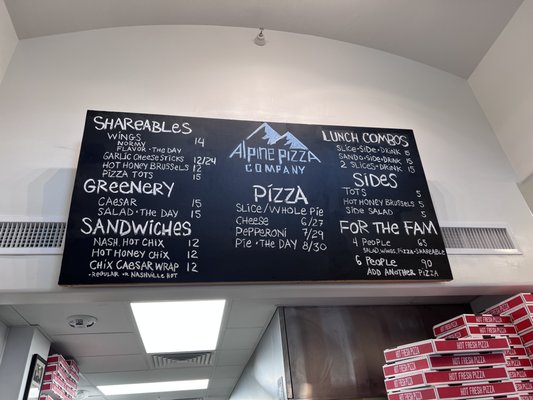 SHAREABLES
WINGS 14
NORMY
FLAVOR · THE DAY
GARLIC CHEESE STICKS 12/24
HOT HONEY BRUSSELS 12
PIZZA TOTS 15
GREENERY
CAESAR 15
SALAD · THE DAY 15
SANDWICHES
NASH. HOT CHIX 12
HOT HONEY CHIX 12
CHIX CAESAR WRAP 12
REGULAR OR NASHVILLE HOT
ALPINE PIZZA
COMPANY
PIZZA
SLICE/WHOLE PIE
CHEESE 6/27
PEPPERONI 7/29
PIE · THE DAY 8/30
LUNCH COMBOS
SLICE · SIDE · DRINK
SANDO · SIDE · DRINK 15
2 SLICES · DRINK 15
SIDES
TOTS 5
HOT HONEY BRUSSELS 5
SIDE SALAD 5
FOR THE FAM
4 PEOPLE 65
SALAD, WINGS, PIZZA, SHAREABLE
6 PEOPLE 90
ADD ANOTHER PIZZA
HOT FRESH PIZZA
HOT FRESH PIZZA
HOT FRESH PIZZA
HOT FRESH PIZZA
HOT FRESH PIZZA
HOT FRESH PIZZA